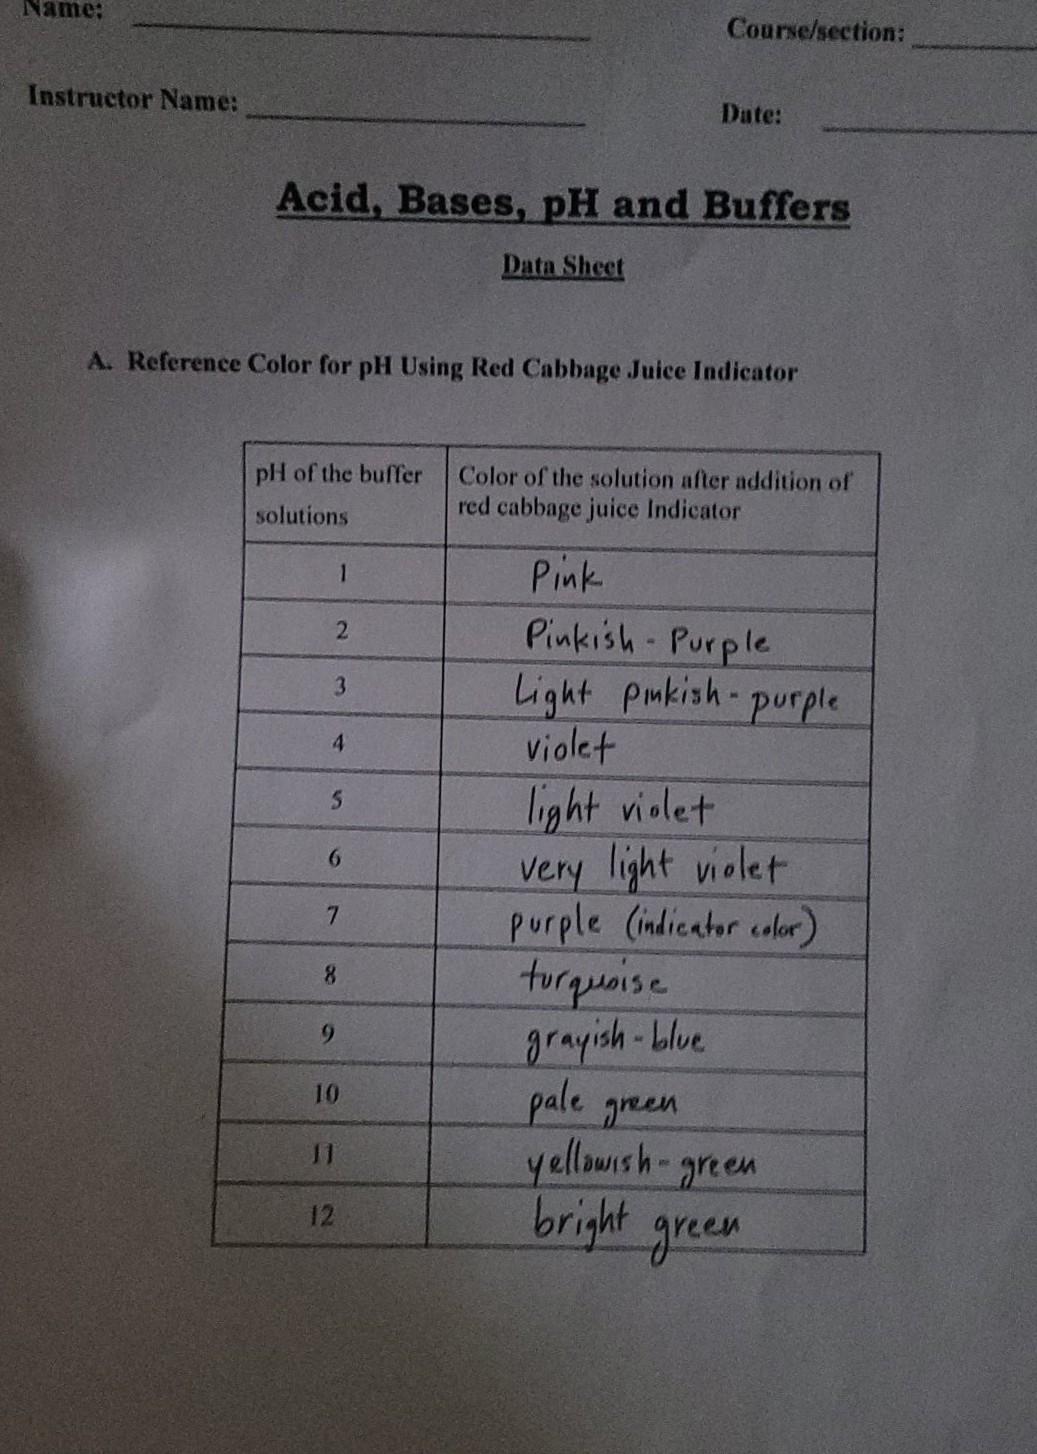 Name:
Course/section:
Instructor Name:
Date:
Acid, Bases, pH and Buffers
Data Sheet
A. Reference Color for pH Using Red Cabbage Juice Indicator
pH of the buffer
solutions
Color of the solution after addition of
red cabbage juice Indicator
1 Pink
2 Pinkish - Purple
3 Light pinkish - purple
4 violet
5 light violet
6 very light violet
7 purple (indicator color)
8 turquoise
9 grayish - blue
10 pale green
11 yellowish - green
12 bright green